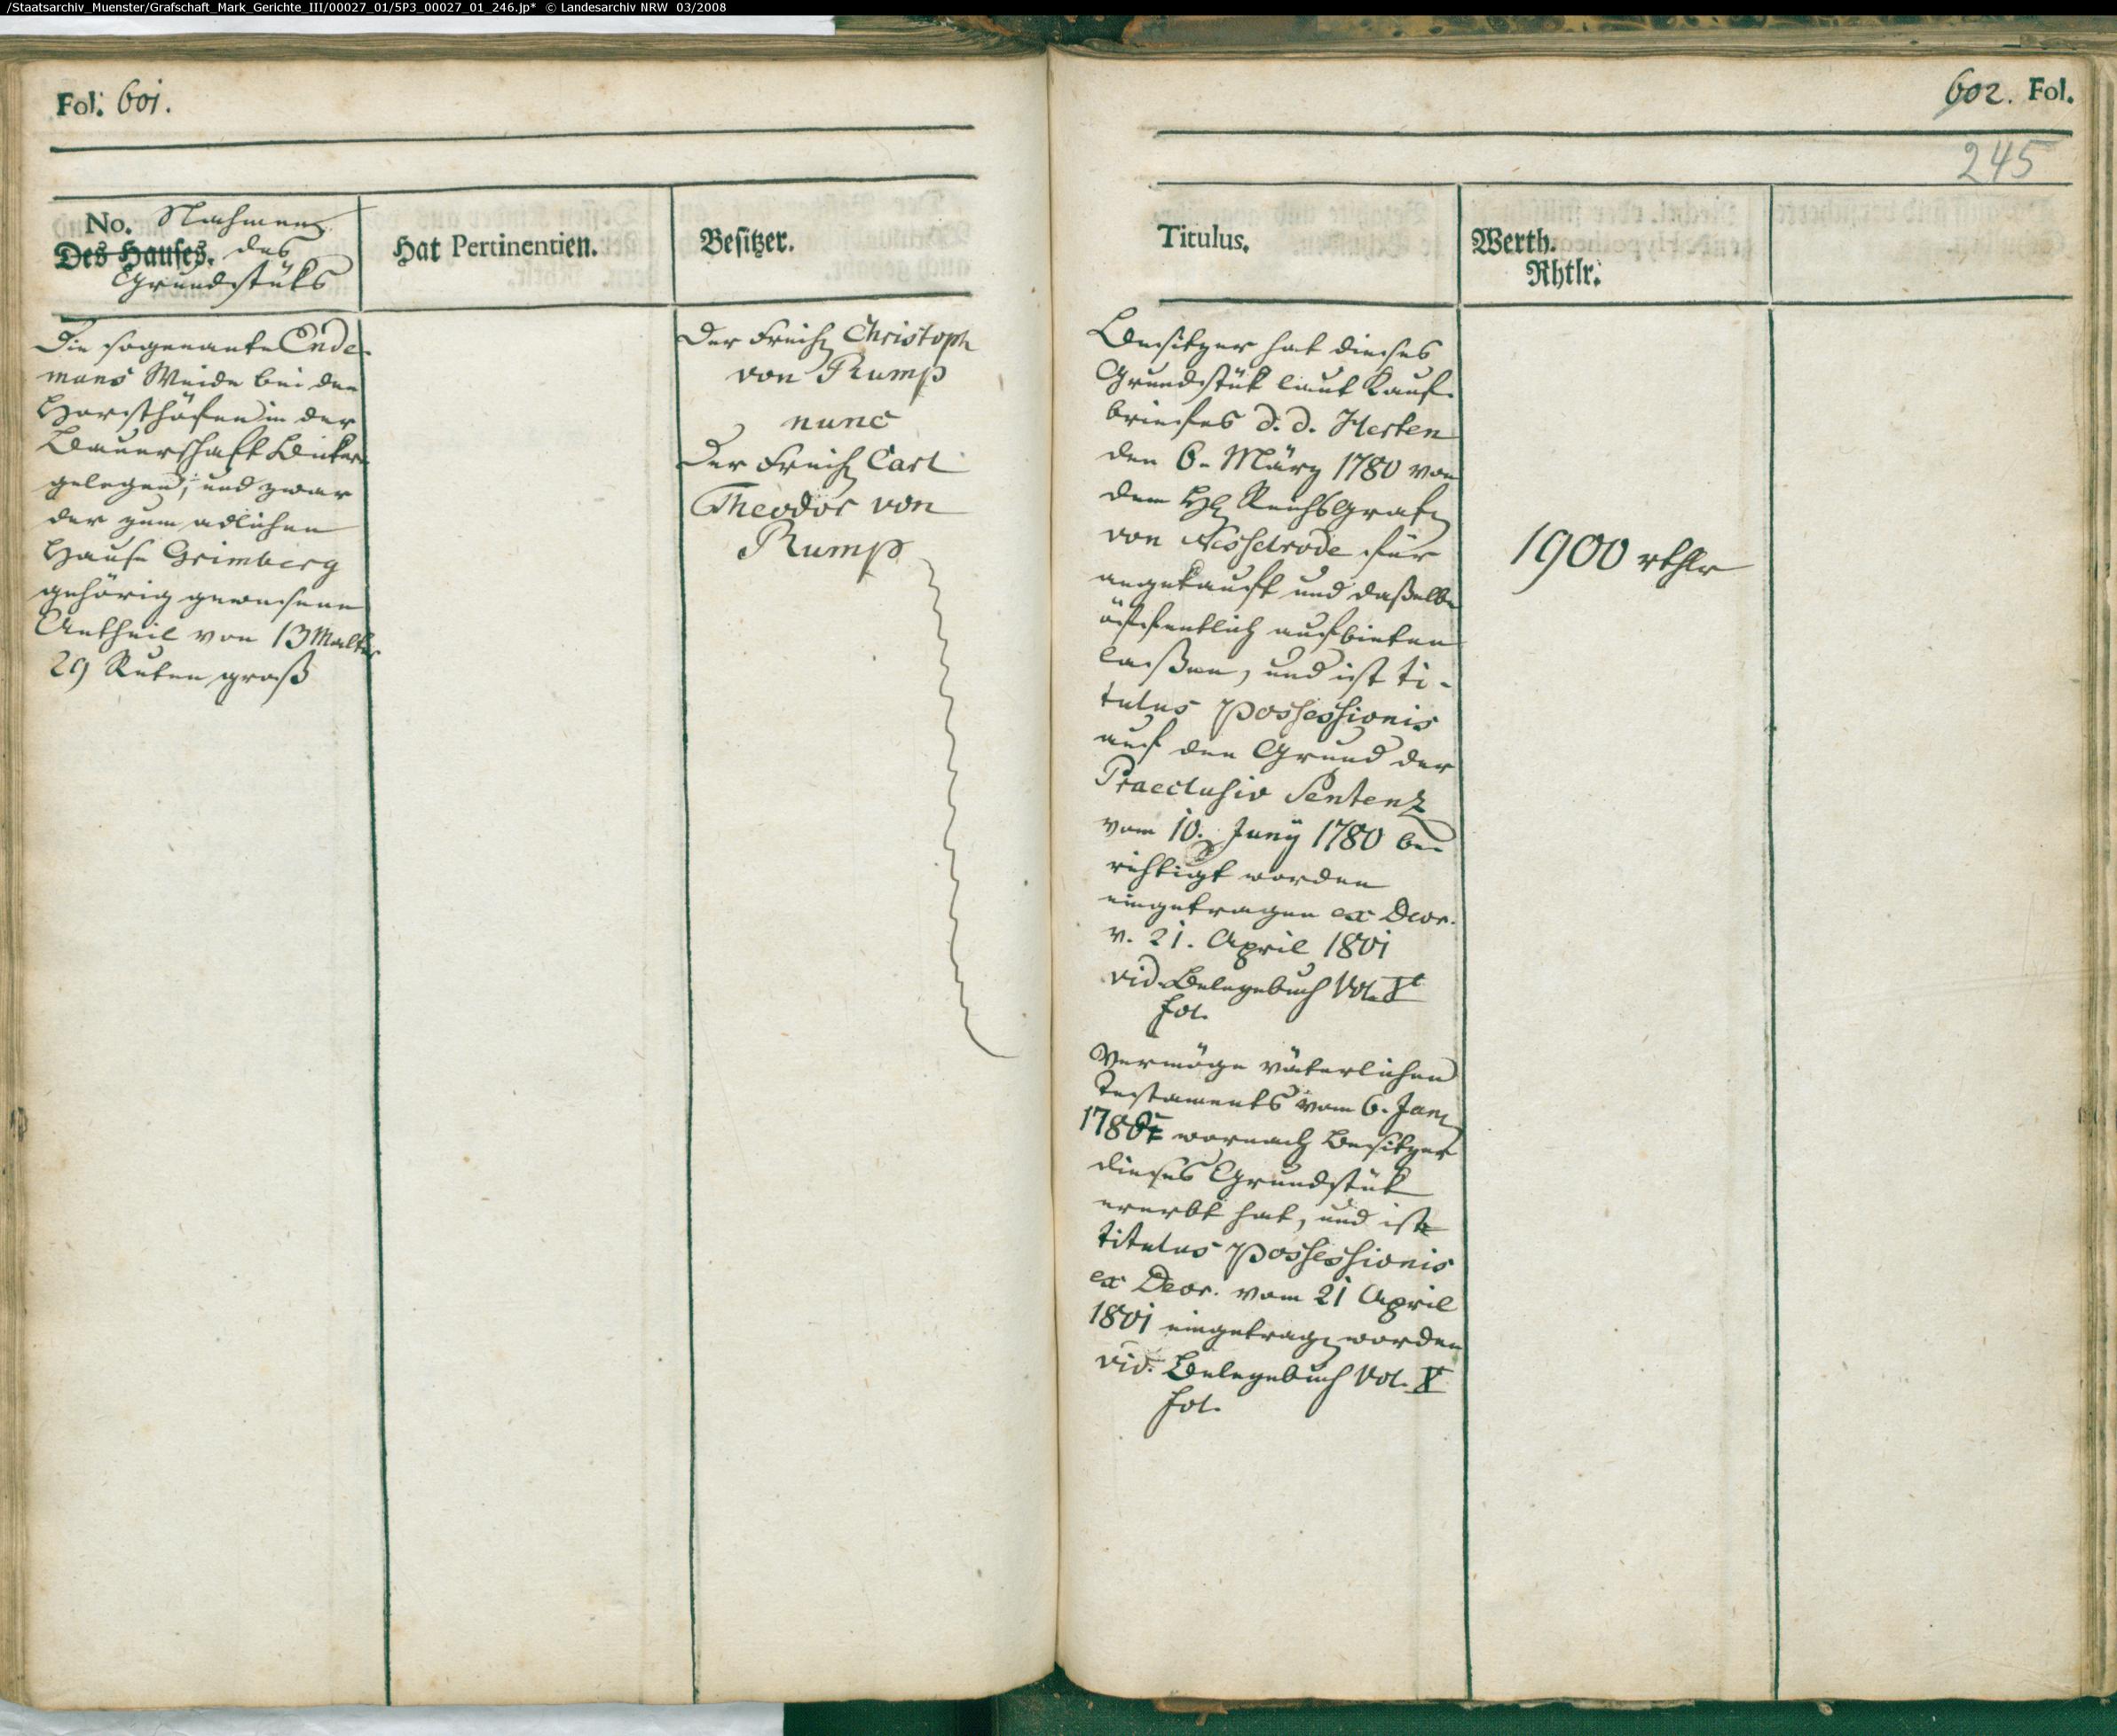 /Staatsarchiv_Muenster/Grafschaft_Mark_Gerichte_III/00027_01/5P3_00027_01_246.jp* © Landesarchiv NRW 03/2008
Fol. 601.
No. Nahmen
Des Hauses. des
Grundstüks
Hat Pertinentien.
Besitzer.
Die sogenante Ende
mans Weide bei den
Horsthöfen in der
Bauerschaft Büker
gelegen, und zwar
der zum adlichen
Hause Grimberg
gehörig gewesene
Antheil von 13 Malter
29 Ruten groß
Der Freih Christoph
von Rump
nunc
Der Freih Carl
Theodor von
Rump
602. Fol.
245
Titulus.
Werth.
Rhtlr.
Besitzer hat dieses
Grundstük laut Kauf
briefes d. d. Herten
den 6. März 1780 von
dem H Reichs Grafen
von Nesselrode für
angekauft und daßelbe
öffentlich aufbieten
laßen, und ist ti-
tulus possessionis
auf den Grund der
Praeclusiv Sentenz
vom 10. Juny 1780 be
richtigt worden
eingetragen ex Decr.
v. 21. April 1801
vid. Belegebuch Vol. X
fol.
Vermöge väterlichen
Testaments vom 6. Jan
wornach Besitzer
dieses Grundstük
ererbt hat, und ist
titulus possessionis
ex Decr. vom 21 April
1801 eingetragen worden
vid. Belegebuch Vol. X
fol.
1900 rthlr